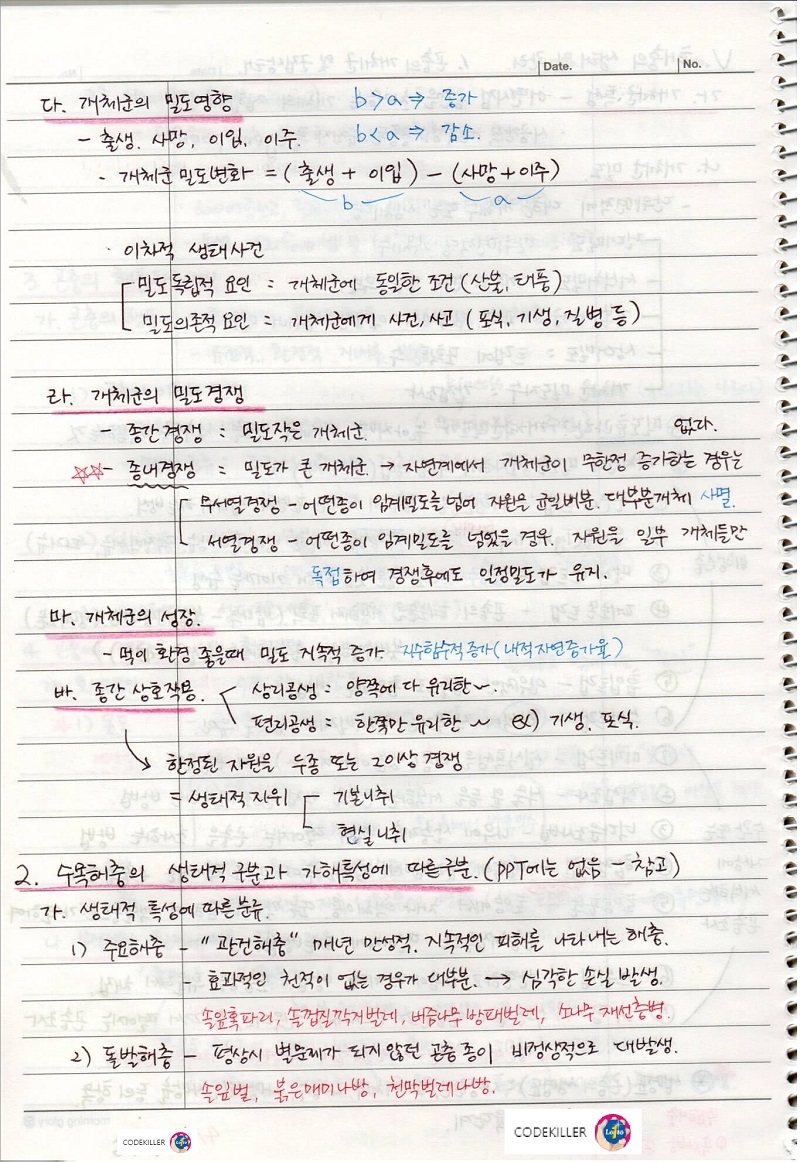 Date. No.
다. 개체군의 밀도영향 b>a ⇒ 증가
- 출생. 사망, 이입, 이주. b<a ⇒ 감소.
- 개체군 밀도변화 = (출생 + 이입) - (사망+이주)
b a
· 이차적 생태사건
밀도독립적 요인 = 개체군에 동일한 조건 (산불, 태풍)
밀도의존적요인 = 개체군에게 사건, 사고 (포식, 기생, 질병 등)
라. 개체군의 밀도경쟁
- 종간경쟁 = 밀도작은 개체군. 없다.
☆☆- 종내경쟁 = 밀도가 큰 개체군. → 자연계에서 개체군이 무한정 증가하는 경우는
무서열경쟁 - 어떤종이 임계밀도를 넘어 자원을 균일배분. 대부분개체 사멸.
서열경쟁 - 어떤종이 임계밀도를 넘었을 경우. 자원을 일부 개체들만
독점하여 경쟁후에도 일정밀도가 유지.
마. 개체군의 성장.
- 먹이 환경 좋을때 밀도 지속적 증가. 지수함수적 증가(내적자연증가율)
바. 종간 상호작용. 상리공생 = 양쪽에 다 유리한~.
편리공생 = 한쪽만 유리한 ~ ex) 기생. 포식.
↘ 한정된 자원을 두종 또는 2이상 경쟁
= 생태적 지위 기본니취
현실니취
2. 수목해충의 생태적 구분과 가해특성에 따른구분. (PPT에는 없음 - 참고)
가. 생태적 특성에 따른분류.
1) 주요해충 - "관건해충" 매년 만성적. 지속적인 피해를 나타내는 해충.
- 효과적인 천적이 없는 경우가 대부분. → 심각한 손실 발생.
솔잎혹파리, 솔껍질깍지벌레, 버즘나무 방패벌레, 소나무 재선충병.
2) 돌발해충 - 평상시 별문제가 되지 않던 곤충 종이 비정상적으로 대발생.
솔잎벌, 붉은매미나방, 천막벌레나방.
CODEKILLER CODEKILLER